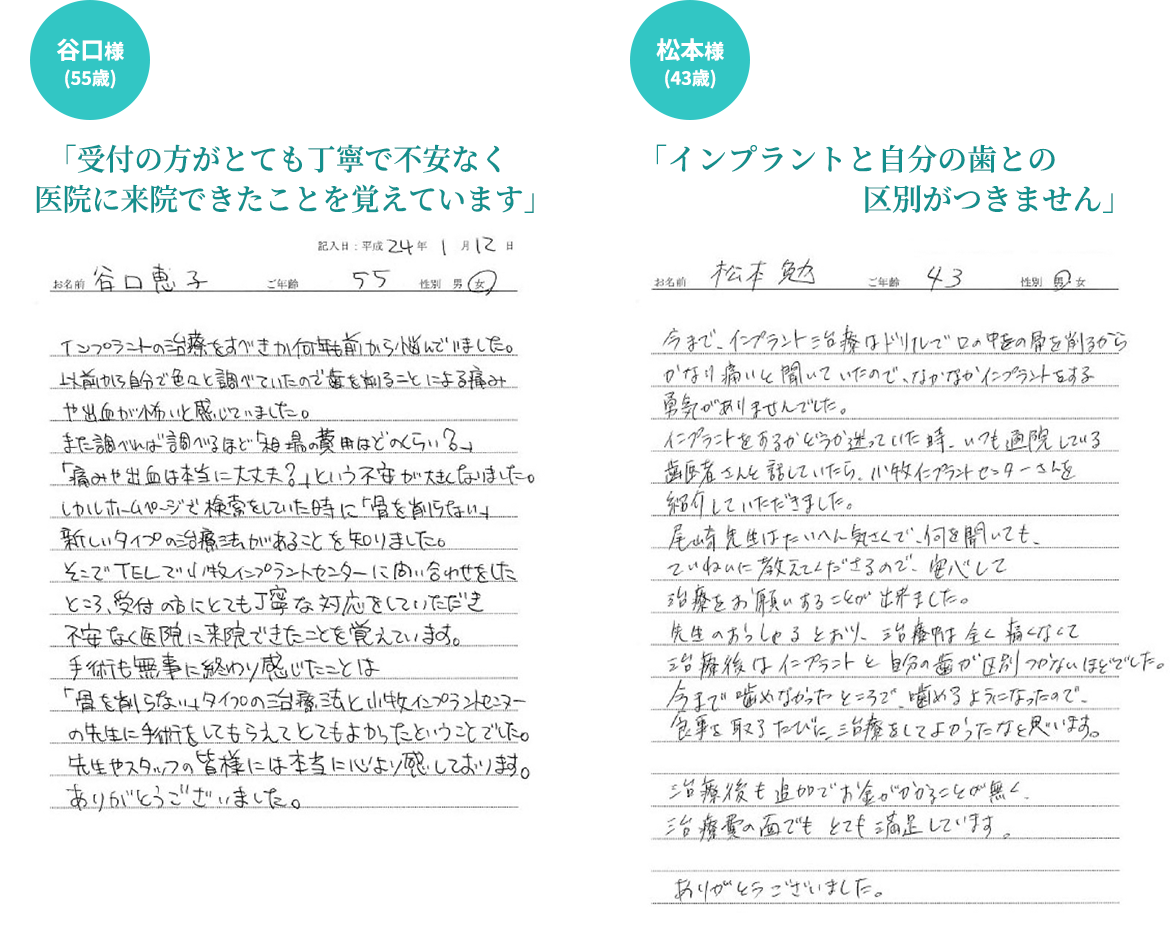 谷口様
(55歳)
「受付の方がとても丁寧で不安なく
医院に来院できたことを覚えています」
記入日：平成24年1月12日
お名前 谷口恵子 ご年齢 55 性別 男 女
インプラントの治療をすべきか何年も前から悩んでいました。
以前から自分で色々と調べていたので歯を削ることによる痛み
や出血が怖いと感じていました。
また調べれば調べるほど「相場の費用はどのくらい？」
「痛みや出血は本当に大丈夫？」という不安が大きくなりました。
しかしホームページで検索をしていた時に「骨を削らない」
新しいタイプの治療法があることを知りました。
そこでTELで小牧インプラントセンターに問い合わせをした
ところ、受付の方にとても丁寧な対応をしていただき
不安なく医院に来院できたことを覚えています。
手術も無事に終わり感じたことは
「骨を削らない」タイプの治療法と小牧インプラントセンター
の先生に手術をしてもらえてとてもよかったということでした。
先生やスタッフの皆様には本当に心より感しております。
ありがとうございました。
松本様
(43歳)
「インプラントと自分の歯との
区別がつきません」
お名前 松本 勉 ご年齢 43 性別 男 女
今まで、インプラント治療はドリルで口の中の骨を削るから
かなり痛いと聞いていたので、なかなかインプラントをする
勇気がありませんでした。
インプラントをするかどうか迷っていた時、いつも通院している
歯医者さんと話していたら、小牧インプラントセンターさんを
紹介していただきました。
尾崎先生はたいへん気さくで、何を聞いても、
ていねいに教えてくださるので、安心して
治療をお願いすることが出来ました。
先生のおっしゃるとおり、治療中は全く痛くなくて
治療後はインプラントと自分の歯が区別つかないほどでした。
今まで噛めなかったところで、噛めるようになったので、
食事を取るたびに、治療をしてよかったなと思います。
治療後も追加でお金がかかることが無く、
治療費の面でもとても満足しています。
ありがとうございました。